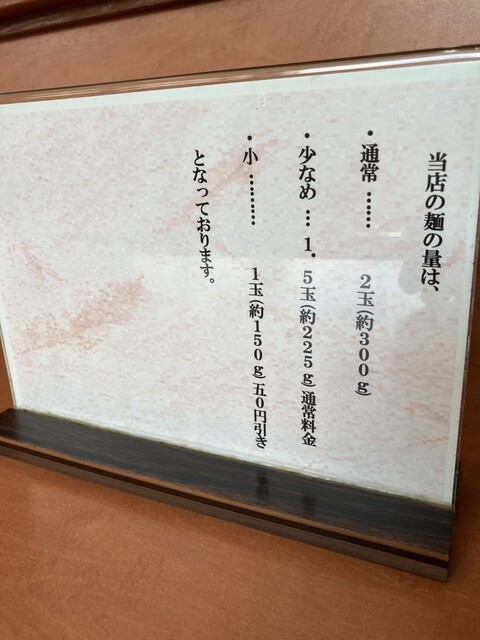 当店の麺の量は、
・通常 …… 2玉(約300g)
・少なめ … 1.5玉(約225g)通常料金
・小 ……… 1玉(約150g)五0円引き
となっております。